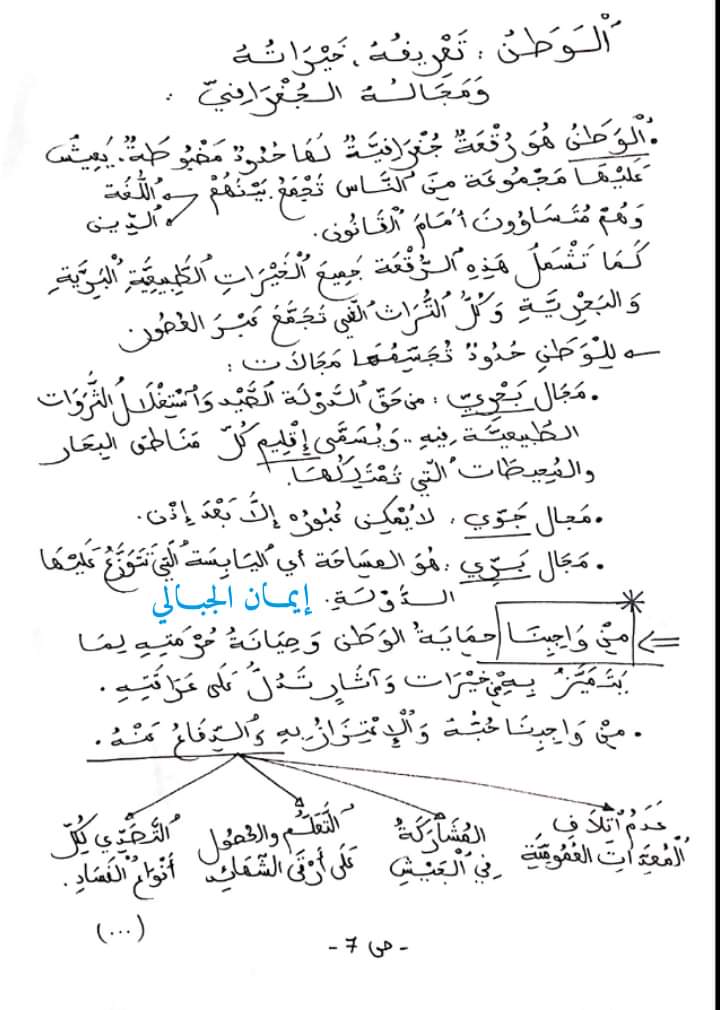 اَلْوَطَنُ : تَعْرِيفُهُ، خَيْرَاتُهُ
وَمَجَالُهُ الجُغْرَافِيّ :
• اَلْوَطَنُ هُوَ رُقْعَةٌ جُغْرَافِيَّةٌ لَهَا حُدُودٌ مَضْبُوطَةٌ. يَعِيشُ
عَلَيْهَا مَجْمُوعَة مِنَ النَّاس تُجْمَعُ بَيْنَهُمْ اللُّغَة
الدِّين
وَهُمْ مُتَسَاوُونَ أَمَامَ القَانُون.
كَمَا تَشْمَلُ هَذِهِ الرُّقْعَة جَمِيعَ الْخَيْرَاتِ الطَّبِيعِيَّةِ الْبَرِّيَّةِ
وَالبَحْرِيَّةِ وَكُلُّ التُّرَاث الَّتِي تُجَمَّعُ عَبْرَ العُصُون
لِلْوَطَنِ حُدُودٌ تُجَسِّمُهَا مَجَالَات :
• مَجَال بَحْرِيّ : مِن حَقّ الدَّوْلَة الصَّيْد وَاسْتِغْلَالُ الثَّرَوَات
الطَّبِيعِيَّة فِيهِ.. وَيُسَمَّى إِقْلِيم كُلّ مَنَاطِق البِحَار
والمُحِيطَات الَّتِي تَمْتَلِكُهَا.
• مَجال جَوّي : لَا يُمْكِن عُبُورُه إِلَّا بَعْدَ إِذْن.
• مَجَال بَرّي : هُوَ المِسَاحَة أي اليَابِسَة الَّتِي تَتَوَزَّعُ عَلَيْهَا
الدَّوْلَة.
إيمان الجبالي
مِنْ وَاجِبِنَا حِمَايَةُ الوَطَن وَصِيَانَةُ حُرْمَتِهِ لِمَا
يَتَمَيَّزُ بِهِ مِنْ خَيْرَات وَآثَارٍ تَدُلُّ عَلَى عَرَاقَتِهِ.
• مِنْ وَاجِبِنَا حُبُّهُ وَالْإِعْتِزَازُ بِهِ وَالدِّفَاعُ عَنْهُ.
عَدَمُ اتْلَافِ
المُعِدَّاتِ العُمُومِيَّة
المُشَارَكَةُ
فِي الْجَيْشِ
التَّعَلُّمُ وَالحُصُول
عَلَى أَرْقَى الشَّهَائِد
التَّصَدِّي لِكُلّ
أَنْوَاعِ الفَسَادِ.
(...)
- ص 7 -